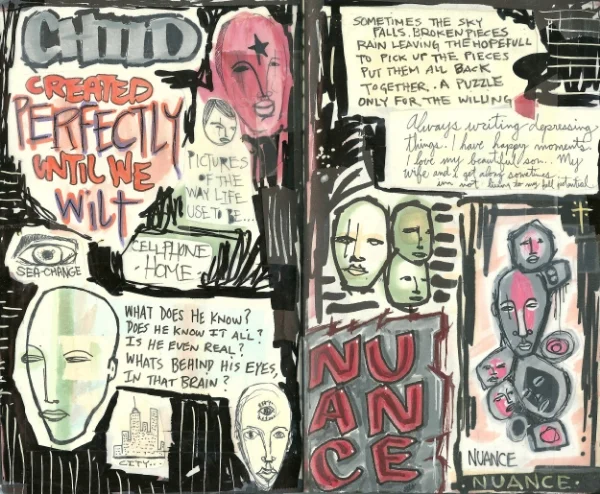 CHIID
CREATED
PERFECTLY
UNTIL WE
WILT
PICTURES
OF THE
WAY LIFE
USE TO BE...
SEA-CHANGE
CELLPHONE
-HOME-
WHAT DOES HE KNOW?
DOES HE KNOW IT ALL?
IS HE EVEN REAL?
WHATS BEHIND HIS EYES,
IN THAT BRAIN?
CITY...
SOMETIMES THE SKY
FALLS. BROKEN PIECES
RAIN LEAVING THE HOPEFULL
TO PICK UP THE PIECES
PUT THEM ALL BACK
TOGETHER. A PUZZLE
ONLY FOR THE WILLING
Always writing depressing
things. I have happy moments.
I love my beautiful son... My
wife and I get along sometimes.
am not living to my full potential
NU
AN
CE
NUANCE
NUANCE.